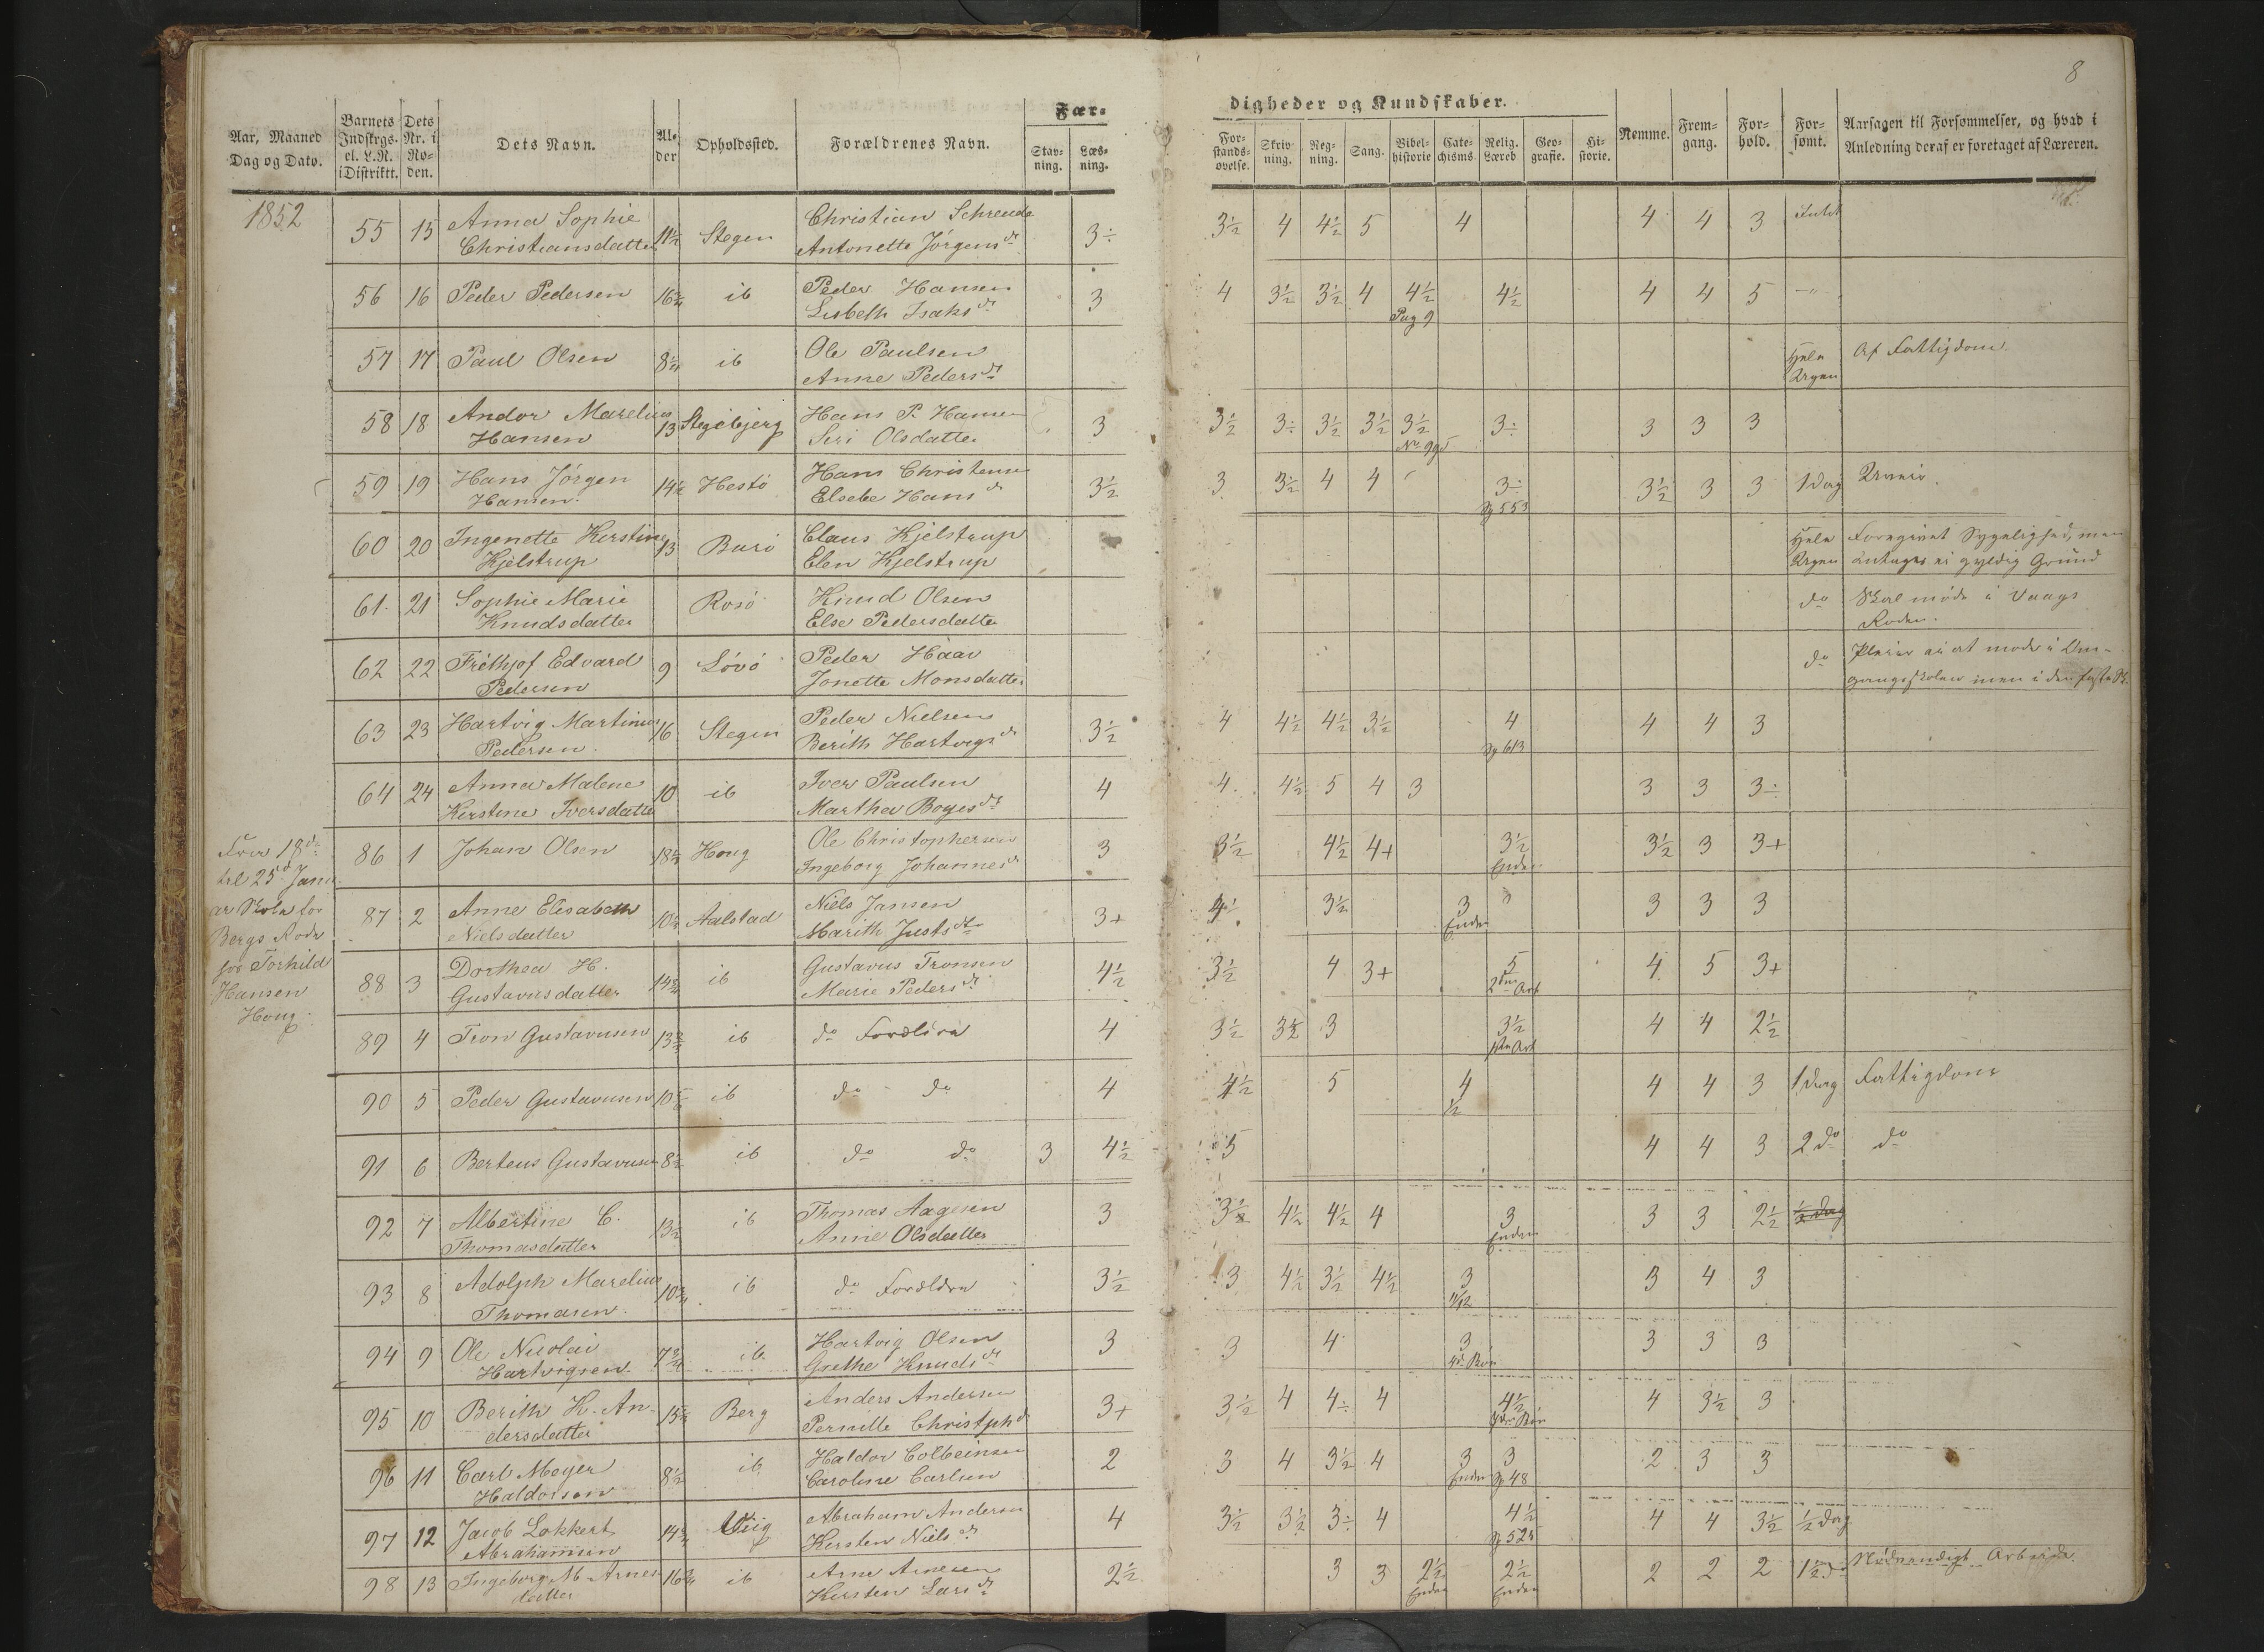 8
Fær-
digheder og Kundskaber.
Aar, Maaned Dag og Dato.
Barnets Indskrgs. el. L.N. i Distriktt.
Dets Nr. i Ro-den.
Dets Navn.
Al-der
Opholdssted.
Forældrenes Navn.
Stav-ning.
Læs-ning.
For-stands-øvelse.
Skriv-ning.
Reg-ning.
Sang.
Bibel-historie
Cate-chisms.
Relig. Læreb
Geo-grafie.
Hi-storie.
Nemme.
Frem-gang.
For-hold.
For-sømt.
Aarsagen til Forsømmelser, og hvad i Anledning deraf er foretaget af Læreren.
1852
55 15 Anna Sophie Christiansdatter 11½ Stegen Antonette Jörgens dr 3÷ 3½ 4 4½ 5 4 4 4 3
56 16 Peder Pedersen ib Peder Hansen Lisbeth Isaks dr 3 4 3½ 3½ 4 4½ Pag 9 4½ 4 4 5 -"-
57 17 Paul Olsen ib Ole Paulsen Anne Peders dr Hele Af Fattigdom.
58 18 Andor Marelius Hansen 13 Hans P. Hansen Siri Olsdatter 3 3½ 3÷ 3½ 3½ 3½ 3÷ 3 3 3
59 19 Hans Jörgen Hansen. 14½ Hestö Hans Christensen Elsebe Hans dr 3½ 3 3½ 4 4 3÷ Pg 553 3½ 3 3 1 dag
60 20 Ingenette Kerstine Kjelstrup 13 Burö Claus Kjelstrup Elen Kjelstrup Hele Foregivet Sygelighed, men antages ei gyldig Grund
61. 21 Sophie Marie Knudsdatter Rosö Knud Olsen Else Pedersdatter do Skal möde i Vaags Roden.
62 22 Frithjof Edvard Pedersen 9 Lövö Peder Haav Jonette Monsdatter do Pleier ei at möde i Om-gangsskolen men i den faste Sk.
63 23 Hartvig Martinus Pedersen. 16 Stegen Peder Nielsen Berith Hartvigs dr 3½ 4 4½ 4½ 3½ 4 Pg 613 4 4 3
64 24 Anna Malene Kerstine Iversdatter 10 ib Iver Paulsen Martha Boyes dr 4 4. 4½ 5 4 3 3 3 3÷
Fra 18de til 25d Janu-
ar Skole for
Bergs Rode
hos Torhild
Hansen
Houg.
86 1 Johan Olsen Houg Ole Christophersen Ingeborg Johannes dr 3 3½ 4½ 4+ 3½ Enden 3½ 3 3+
87 2 Anne Elisabeth Nielsdatter Aalstad Niels Jansen Marith Justs dtr 3+ 3½ 3 Enden 3 3 3
88 3 Dorthea H. Gustavusdatter ib Gustavus Tronsen Marie Peders dr 4½ 3½ 4 3+ 5 2den Art 4 5 3+
89 4 Tron Gustavusen ib do Forældre 4 3½ 3½ 3 3½ Art 4 4 2½
90 5 Peder Gustavusen ib do do 4 4½ 5 4 ½ 4 4 3 1 dag Fattigdom
91 6 Berteus Gustavusen 8½ ib do do 3 4½ 5 4 4 3 2 do do
92 7 Albertine C. Thomasdatter 13½ ib Thomas Aagesen Anne Olsdatter 3 3½ 4½ 4½ 4 3 Enden 3 3 2½ ½ dag
93 8 Adolph Marelius Thomasen. ib do Forældre 3½ 3 4½ 3½ 4½ 3 11/12 3 4 3
94 9 Ole Nicolai Hartvigsen. ib Hartvig Olsen Grethe Knuds dr 3 3 4 3 4de Bön 3 3 3
95 10 Berith K. An-dersdatter Berg Anders Andersen Pernille Christph dr 3+ 3½ 4 4÷ 4 4½ Bön 4 3½ 3
96 11 Carl Meyer Haldorsen 8½ ib Haldor Colbeinsen Caroline Carlsen 2 3 4 3½ 4 3 Enden 3 Pg 48 2 3 3
97 12 Jacob Lokkert Abrahamsen Viig Abraham Andersen Kersten Niels dr 4 3½ 3½ 3÷ 4 4½ Pg 525 4 4 3½ ½ dag
98 13 Ingeborg M. Arnes-datter ib Arne Arnesen Kersten Lars dr 2½ 3 3 2½ Enden 2½ Enden 2 2 2 1½ d Nödvendigt Arbeide.